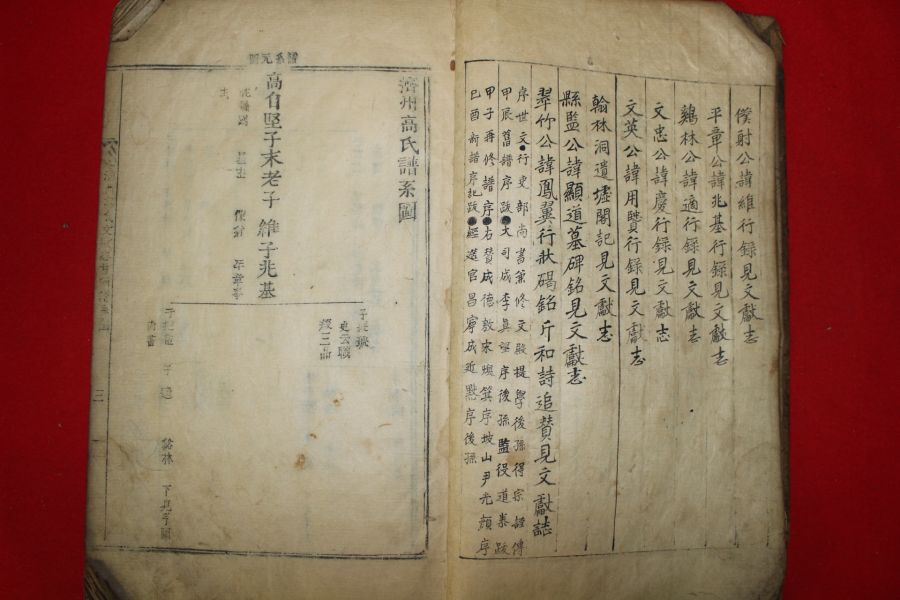 僕射公諱維行錄見文獻志
平章公諱兆基行錄見文獻志
鷄林公諱適行錄見文獻志
文忠公諱慶行錄見文獻志
文英公諱用賢行錄見文獻志
翰林洞遺墟閣記見文獻志
縣監公諱顯道墓碑銘見文獻志
翠竹公諱鳳翼行狀碣銘斤和詩追贊見文獻誌
序世文行吏部尚書兼修文殿提學後孫得宗譜傳
甲辰舊譜序跋大司成李眞望序後孫監役道泰跋
甲子再修譜序右贊成德敎宋煥箕序坡山尹光顔序
己酉新譜序北跋經筵官昌寧成近默序後孫
濟州高氏譜系圖
譜系元圖
高自堅子末老子 維子兆基
平章事
史云職
從三品
子
下見子圖
三